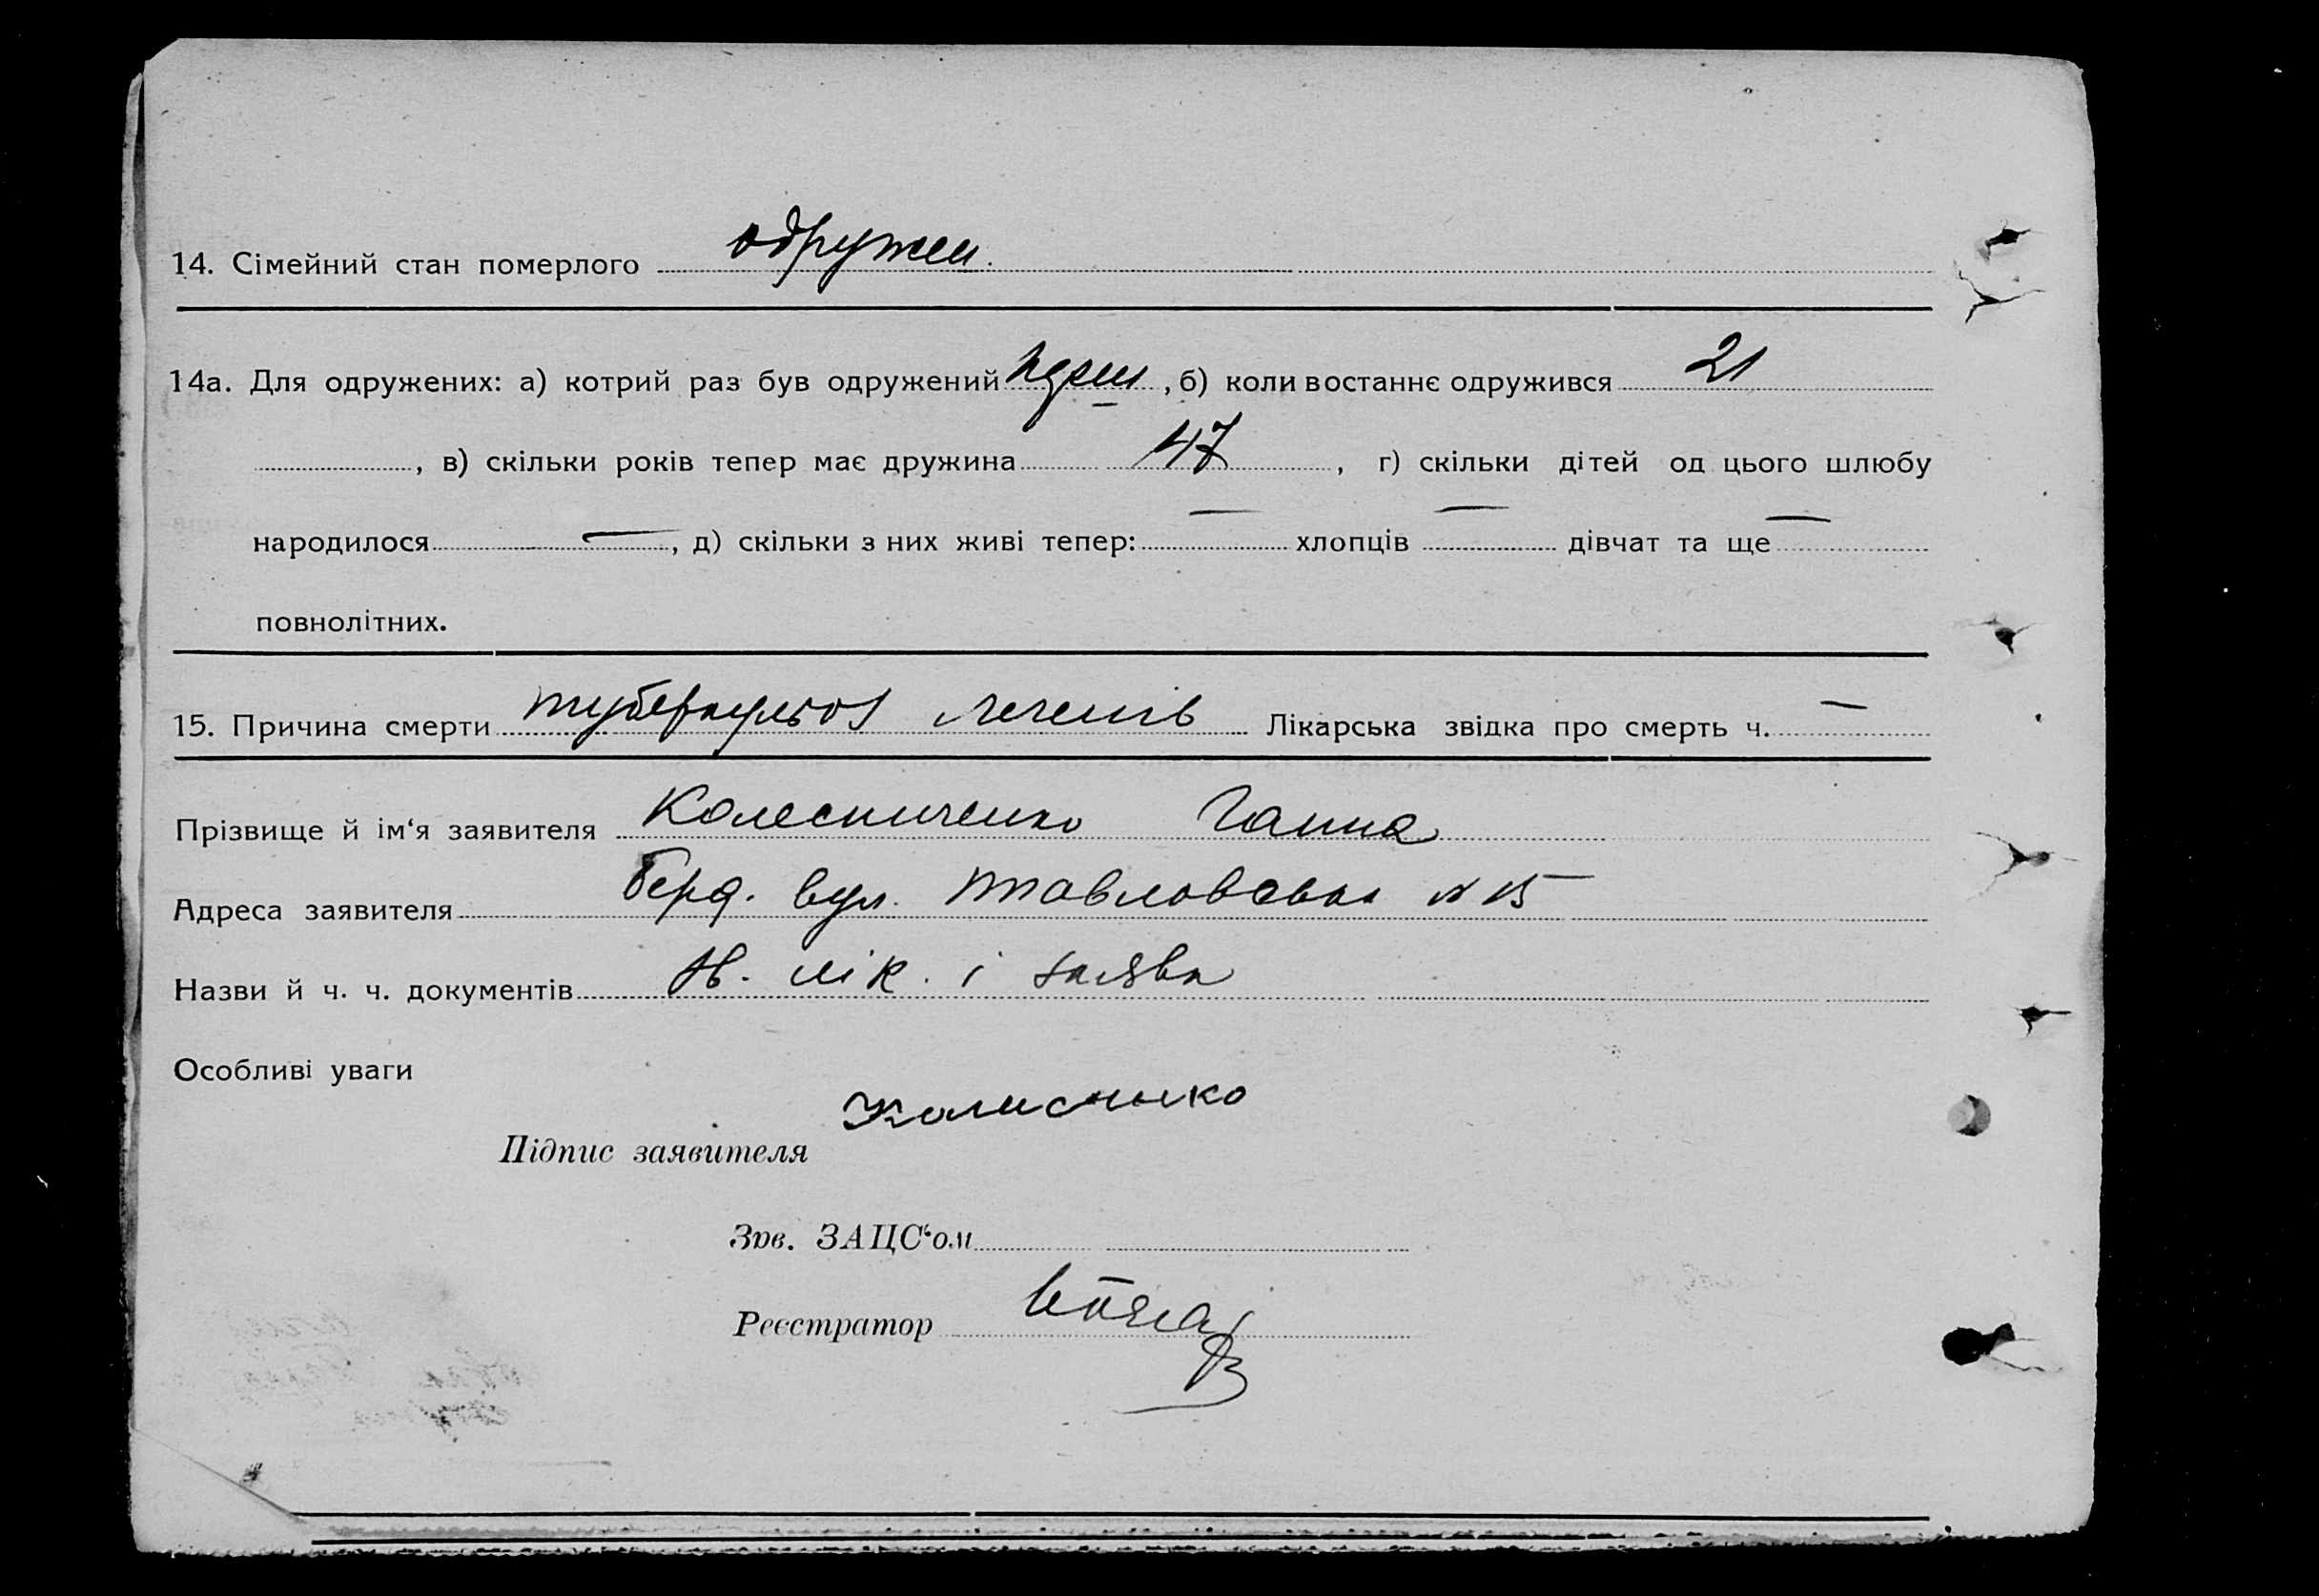 14. Сімейний стан померлого одружен.
14а. Для одружених: а) котрий раз був одружений перш, б) коли востаннє одружився 21
, в) скільки років тепер має дружина 47, г) скільки дітей од цього шлюбу
народилося —, д) скільки з них живі тепер: — хлопців — дівчат та ще —
повнолітних.
15. Причина смерти туберкульоз легенів Лікарська звідка про смерть ч. —
Прізвище й ім‘я заявителя Колесниченко Ганна
Адреса заявителя Берд. вул. Павловська № 15
Назви й ч. ч. документів лік. і заява
Особливі уваги
Підпис заявителя
Зав. ЗАЦС‘ом
Реєстратор